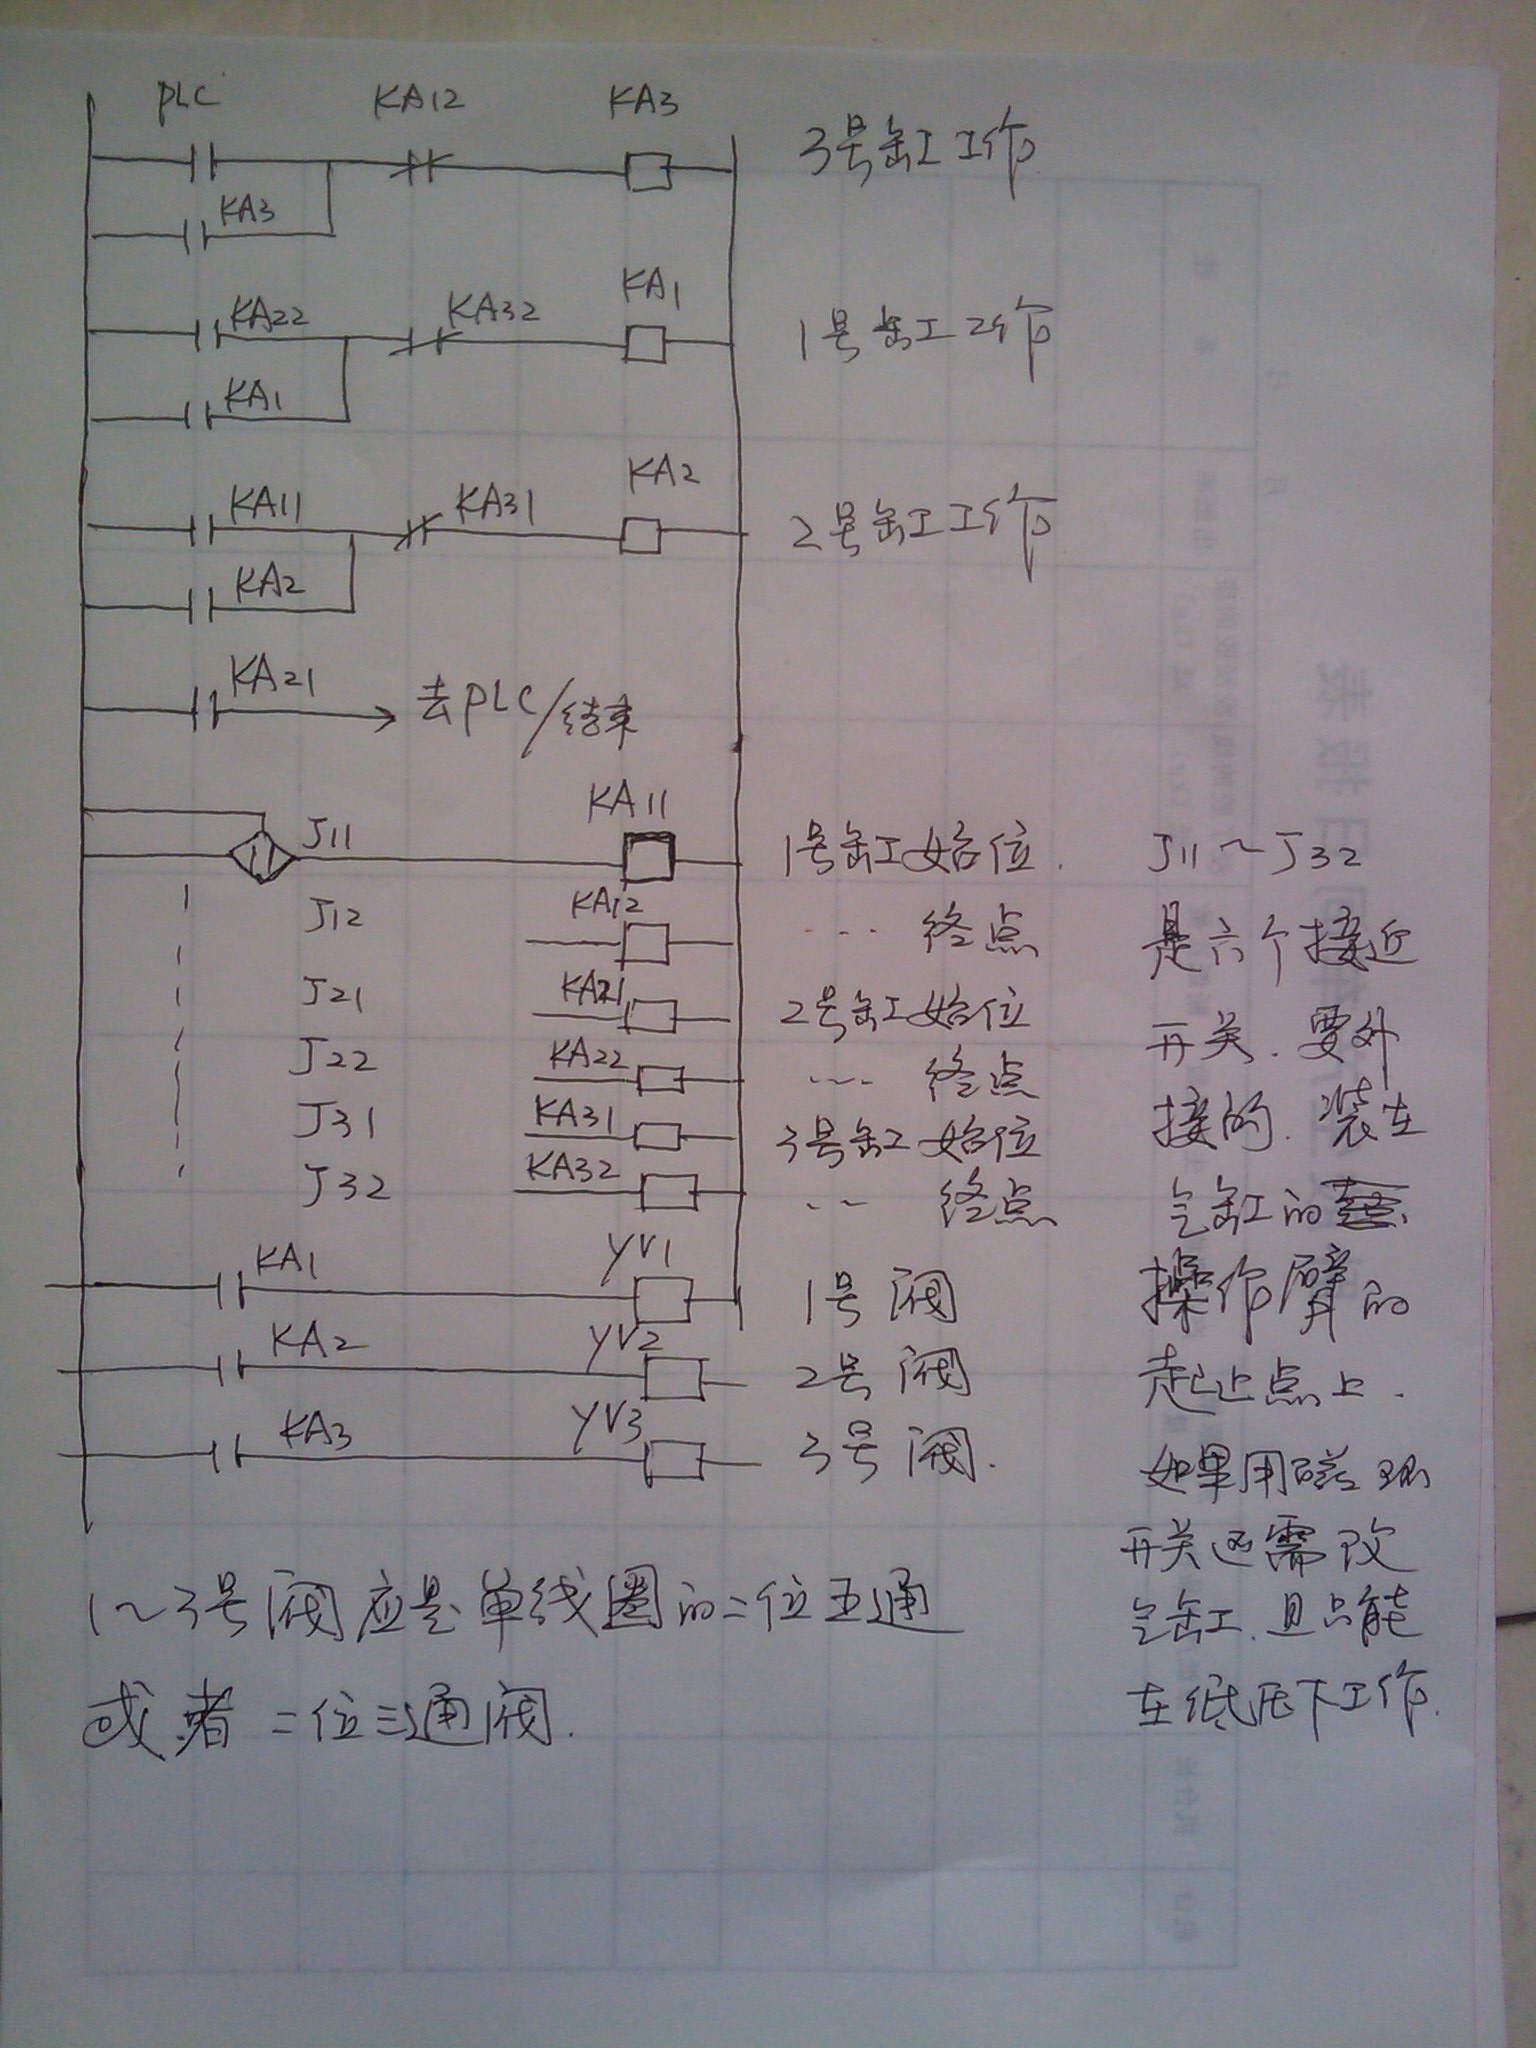 PLC KA12 KA3
3号缸工作
KA3
KA22 KA32 KA1
1号缸工作
KA1
KA11 KA31 KA2
2号缸工作
KA2
KA21 去PLC/结束
J11 KA11 1号缸始位.
J12 KA12 ... 终点
J21 KA21 2号缸始位
J22 KA22 ... 终点
J31 KA31 3号缸始位
J32 KA32 .. 终点
KA1 YV1 1号阀
KA2 YV2 2号阀
KA3 YV3 3号阀.
J11~J32
是六个接近
开关.要外
接的.装在
气缸的
操作臂的
起止点上.
如果用磁环
开关还需改
气缸.且只能
在低压下工作.
1~3号阀应是单线圈的二位五通
或者二位三通阀.